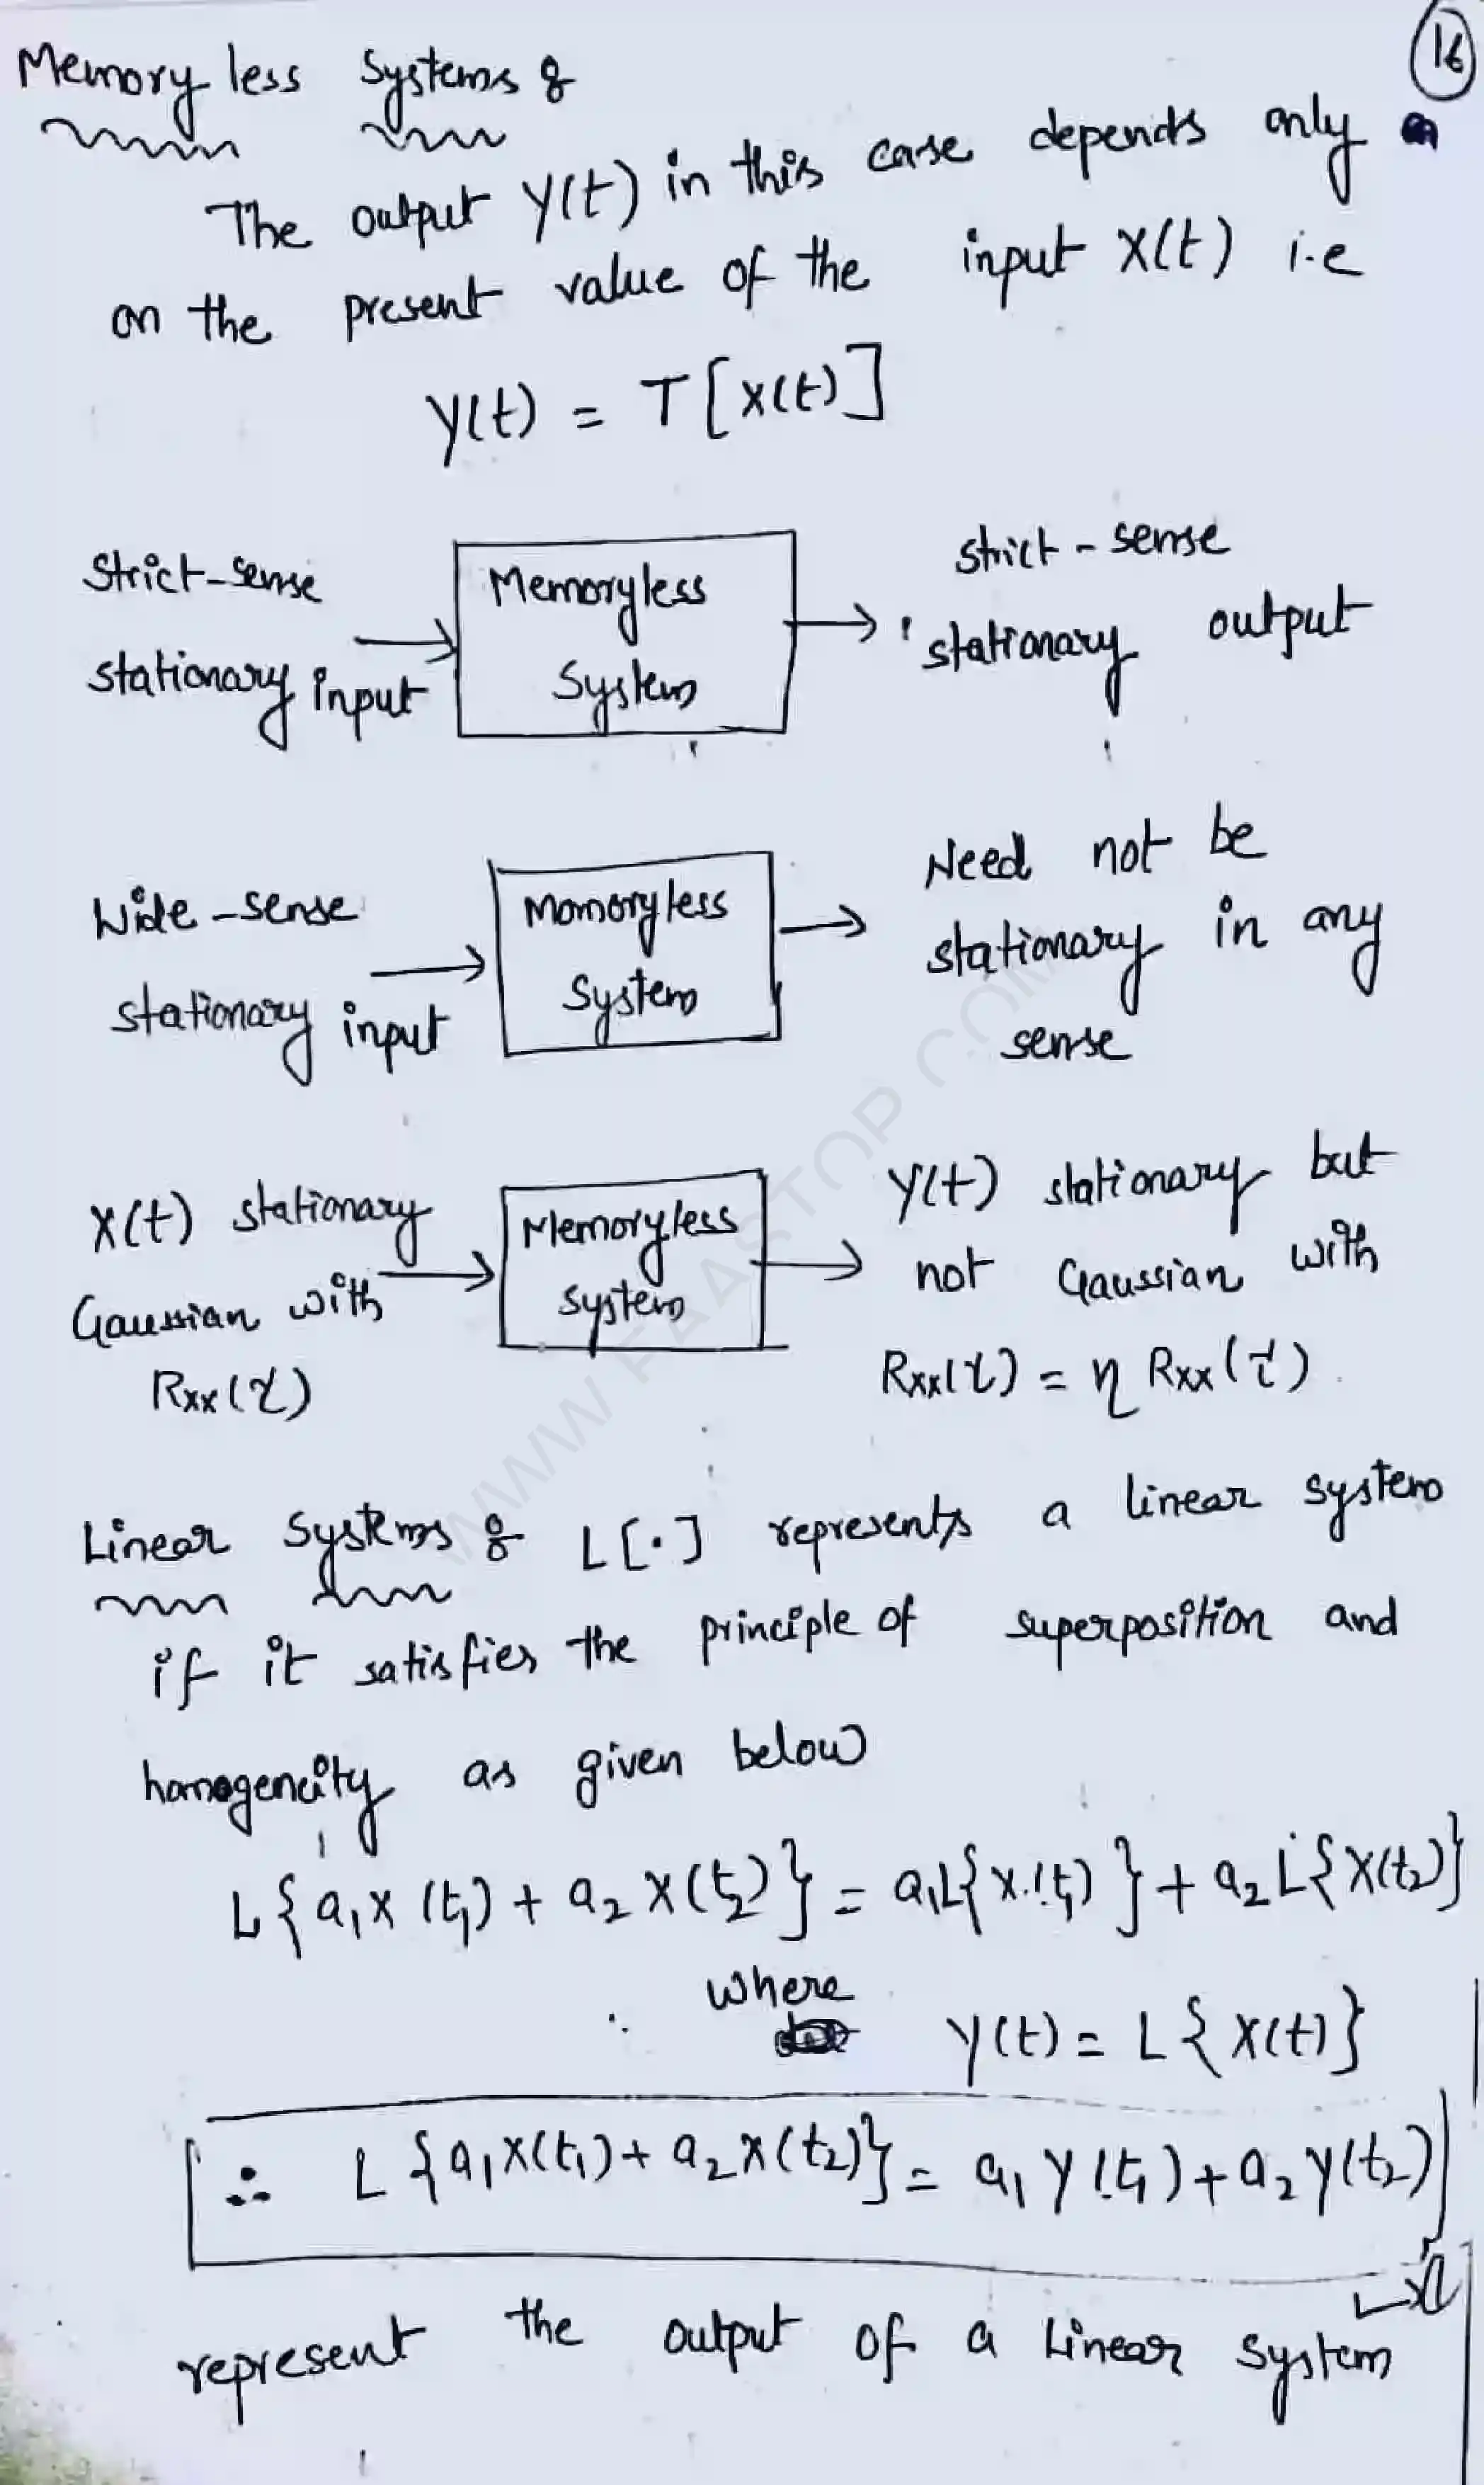 16
Memory less Systems :
The output Y(t) in this case depends only
on the present value of the input X(t) i.e
Y(t) = T[X(t)]
Strict-sense
stationary input
Memoryless
System
strict-sense
stationary output
Wide-sense
stationary input
Momoryless
System
Need not be
stationary in any
sense
X(t) stationary
Gaussian with
Rxx(τ)
Memoryless
System
Y(t) stationary but
not Gaussian with
Rxx(τ) = η Rxx(τ).
Linear Systems : L[·] represents a linear system
if it satisfies the principle of superposition and
homogeneity as given below
L{a₁X(t₁) + a₂X(t₂)} = a₁L{X(t₁)} + a₂L{X(t₂)}
Where
Y(t) = L{X(t)}
∴ L{a₁X(t₁) + a₂X(t₂)} = a₁Y(t₁) + a₂Y(t₂)
represent the output of a Linear System
WWW.FAASTOP.COM